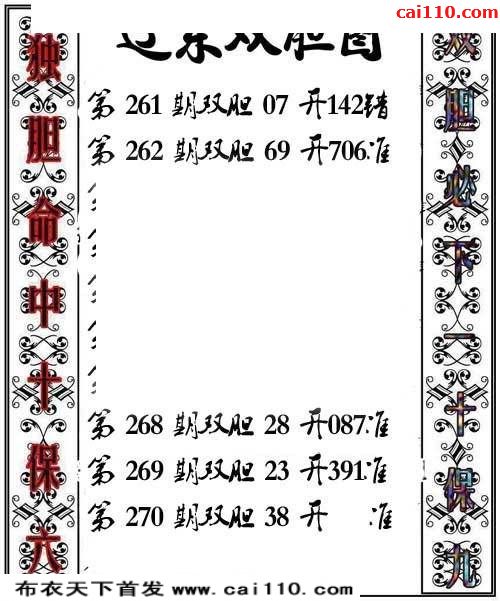 cai110.com
双胆图
独胆命中十保六
第 261 期双胆 07 开142错
第 262 期双胆 69 开706准
第 268 期双胆 28 开087准
第 269 期双胆 23 开391准
第 270 期双胆 38 开 准
双胆必下一十保九
布衣天下首发 www.cai110.com